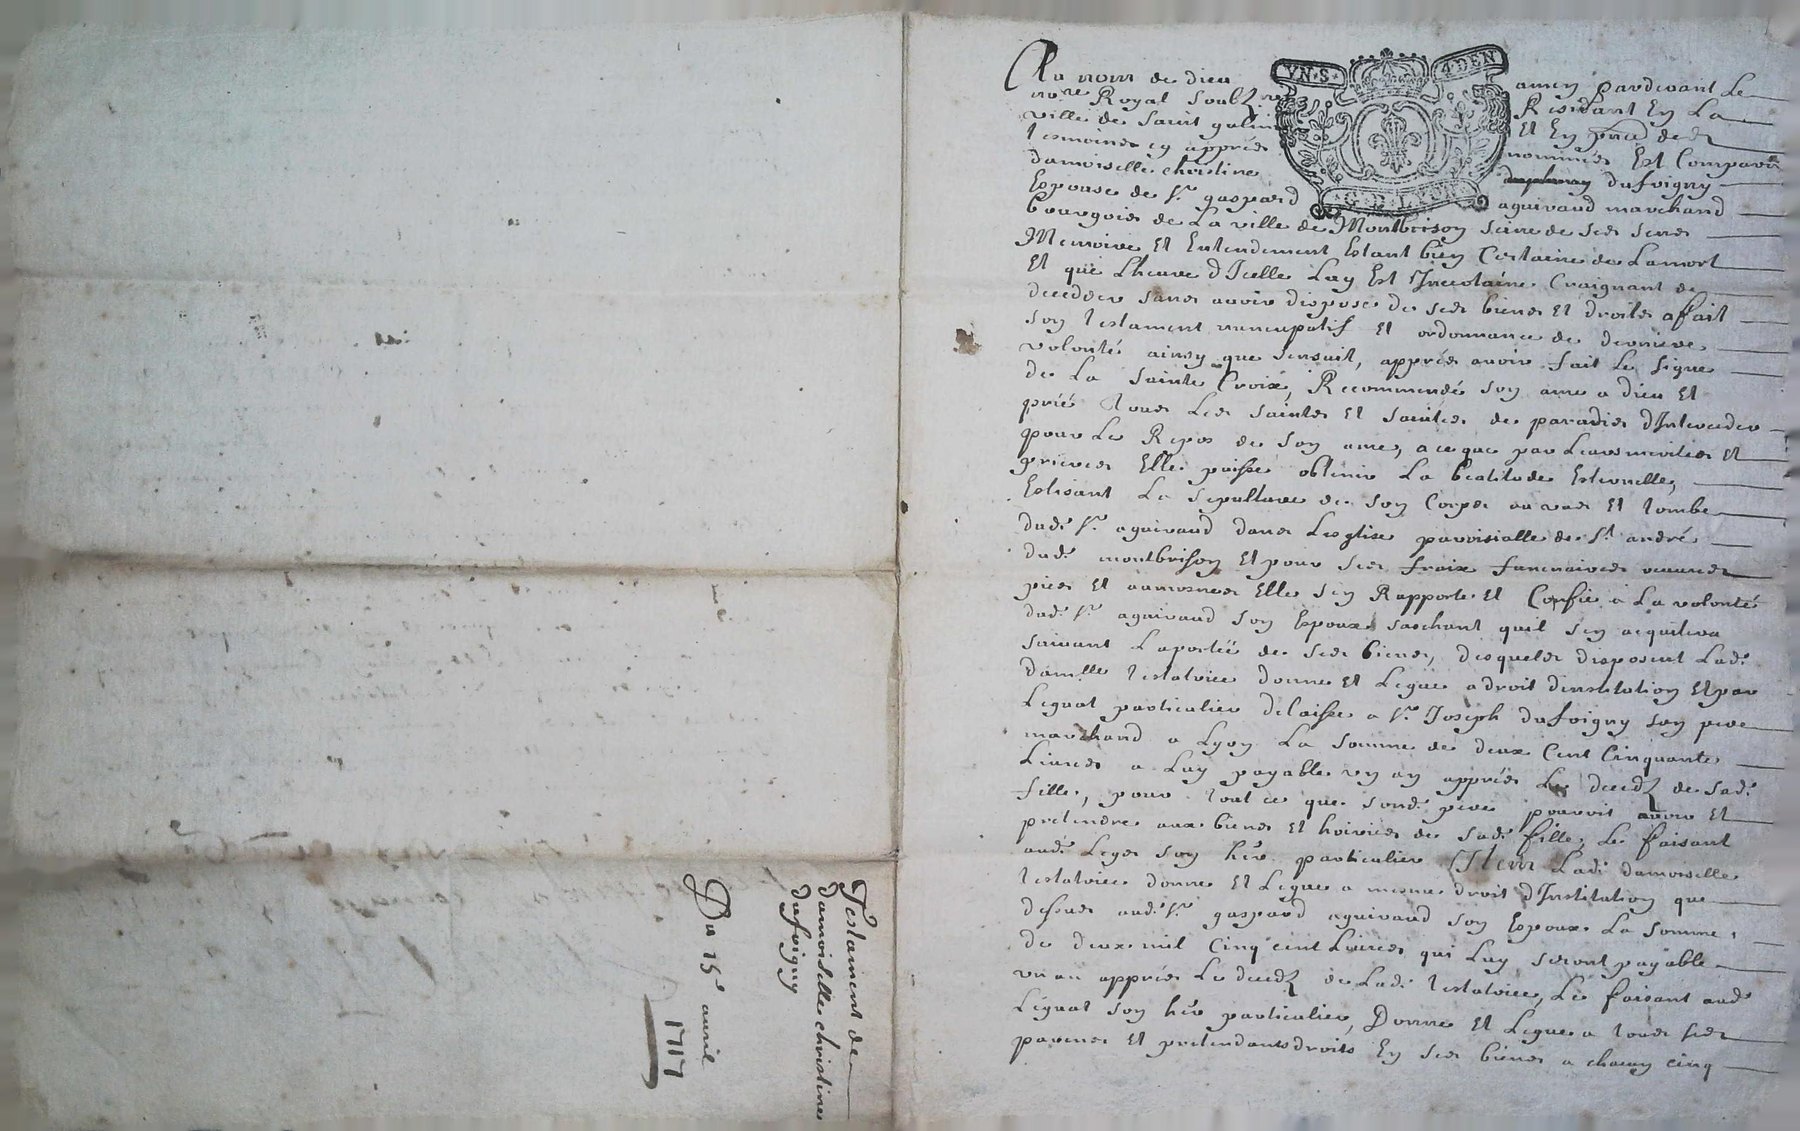 Testament de
damoiselle christine
dufoigny
Du 15e auril
1717
VN·S· 4DEN
G·D·LYON
Au nom de dieu amen pardeuant Le
nore Royal soubzne Residant En La
ville de saint galmi Et En pnce des
tesmoins cy appres nommés Est Comparüe
damoiselle christine dufoigny
Espouse de Sr gaspard aguiraud marchand
bourgois de La ville de Montbrison seine de ses sens
Memoire Et Entendement Estant bien Certaine de Lamort
Et que Lheure d'Icelle Luy Est Incertaine Craignant de
deceder sans auoir disposé de ses biens Et droits a fait
son testament nuncupatif Et ordonnance de derniere
volonté ainsy que sensuit, appres auoir fait Le signe
de La sainte Croix, Recommendé son ame a dieu Et
prié tous Les saints Et saintes de paradis d'Interceder
pour Le Repos de son ame, a ce que par Leurs merites Et
prieres Elle puisse obtenir La beatitude Eternelle,
Eslisant La sepulture de son Corps au vas Et tombe
dudt Sr aguiraud dans Leglise paroisialle de St andré
dudt montbrison Et pour ses fraix funeraires œuures
pies Et aumosnes Elle s'en Rapporte Et Confie a La volonté
dudt Sr aguiraud son Espoux sachant quil s'en acquitera
suiuant La portée de ses biens, desquels disposant Ladt
damlle testatrice donne Et Legue a droit dinstitution Et par
Legat particulier delaisse a Sr Joseph dufoigny son pere
marchand a Lyon La somme de deux Cent Cinquante
Liures a Luy payable vn an appres Le decedz de sadt
fille, pour tout ce que sondt pere pouroit auoir Et
pretendre aux biens Et hoiries de sadt fille, Le faisant
audt Legat son her particulier Item Ladt damoiselle
testatrice donne Et Legue a mesme droit d'Institution que
dessus audt Sr gaspard aguiraud son Espoux La somme
de deux mil Cinq cent Liures qui Luy seront payable
vn an appres Le decedz de Ladt testatrice, Le faisant audt
Legat son her particulier, Donne Et Legue a tous ses
parens Et pretendants droits En ses biens a chacun cinq